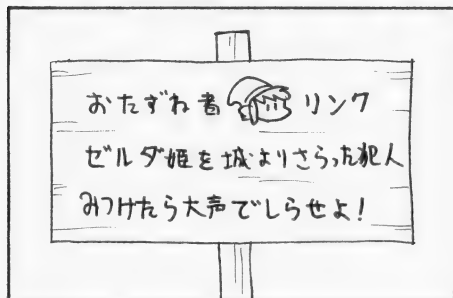 おたずね者 リンク
ゼルダ姫を城よりさらった犯人
みつけたら大声でしらせよ!